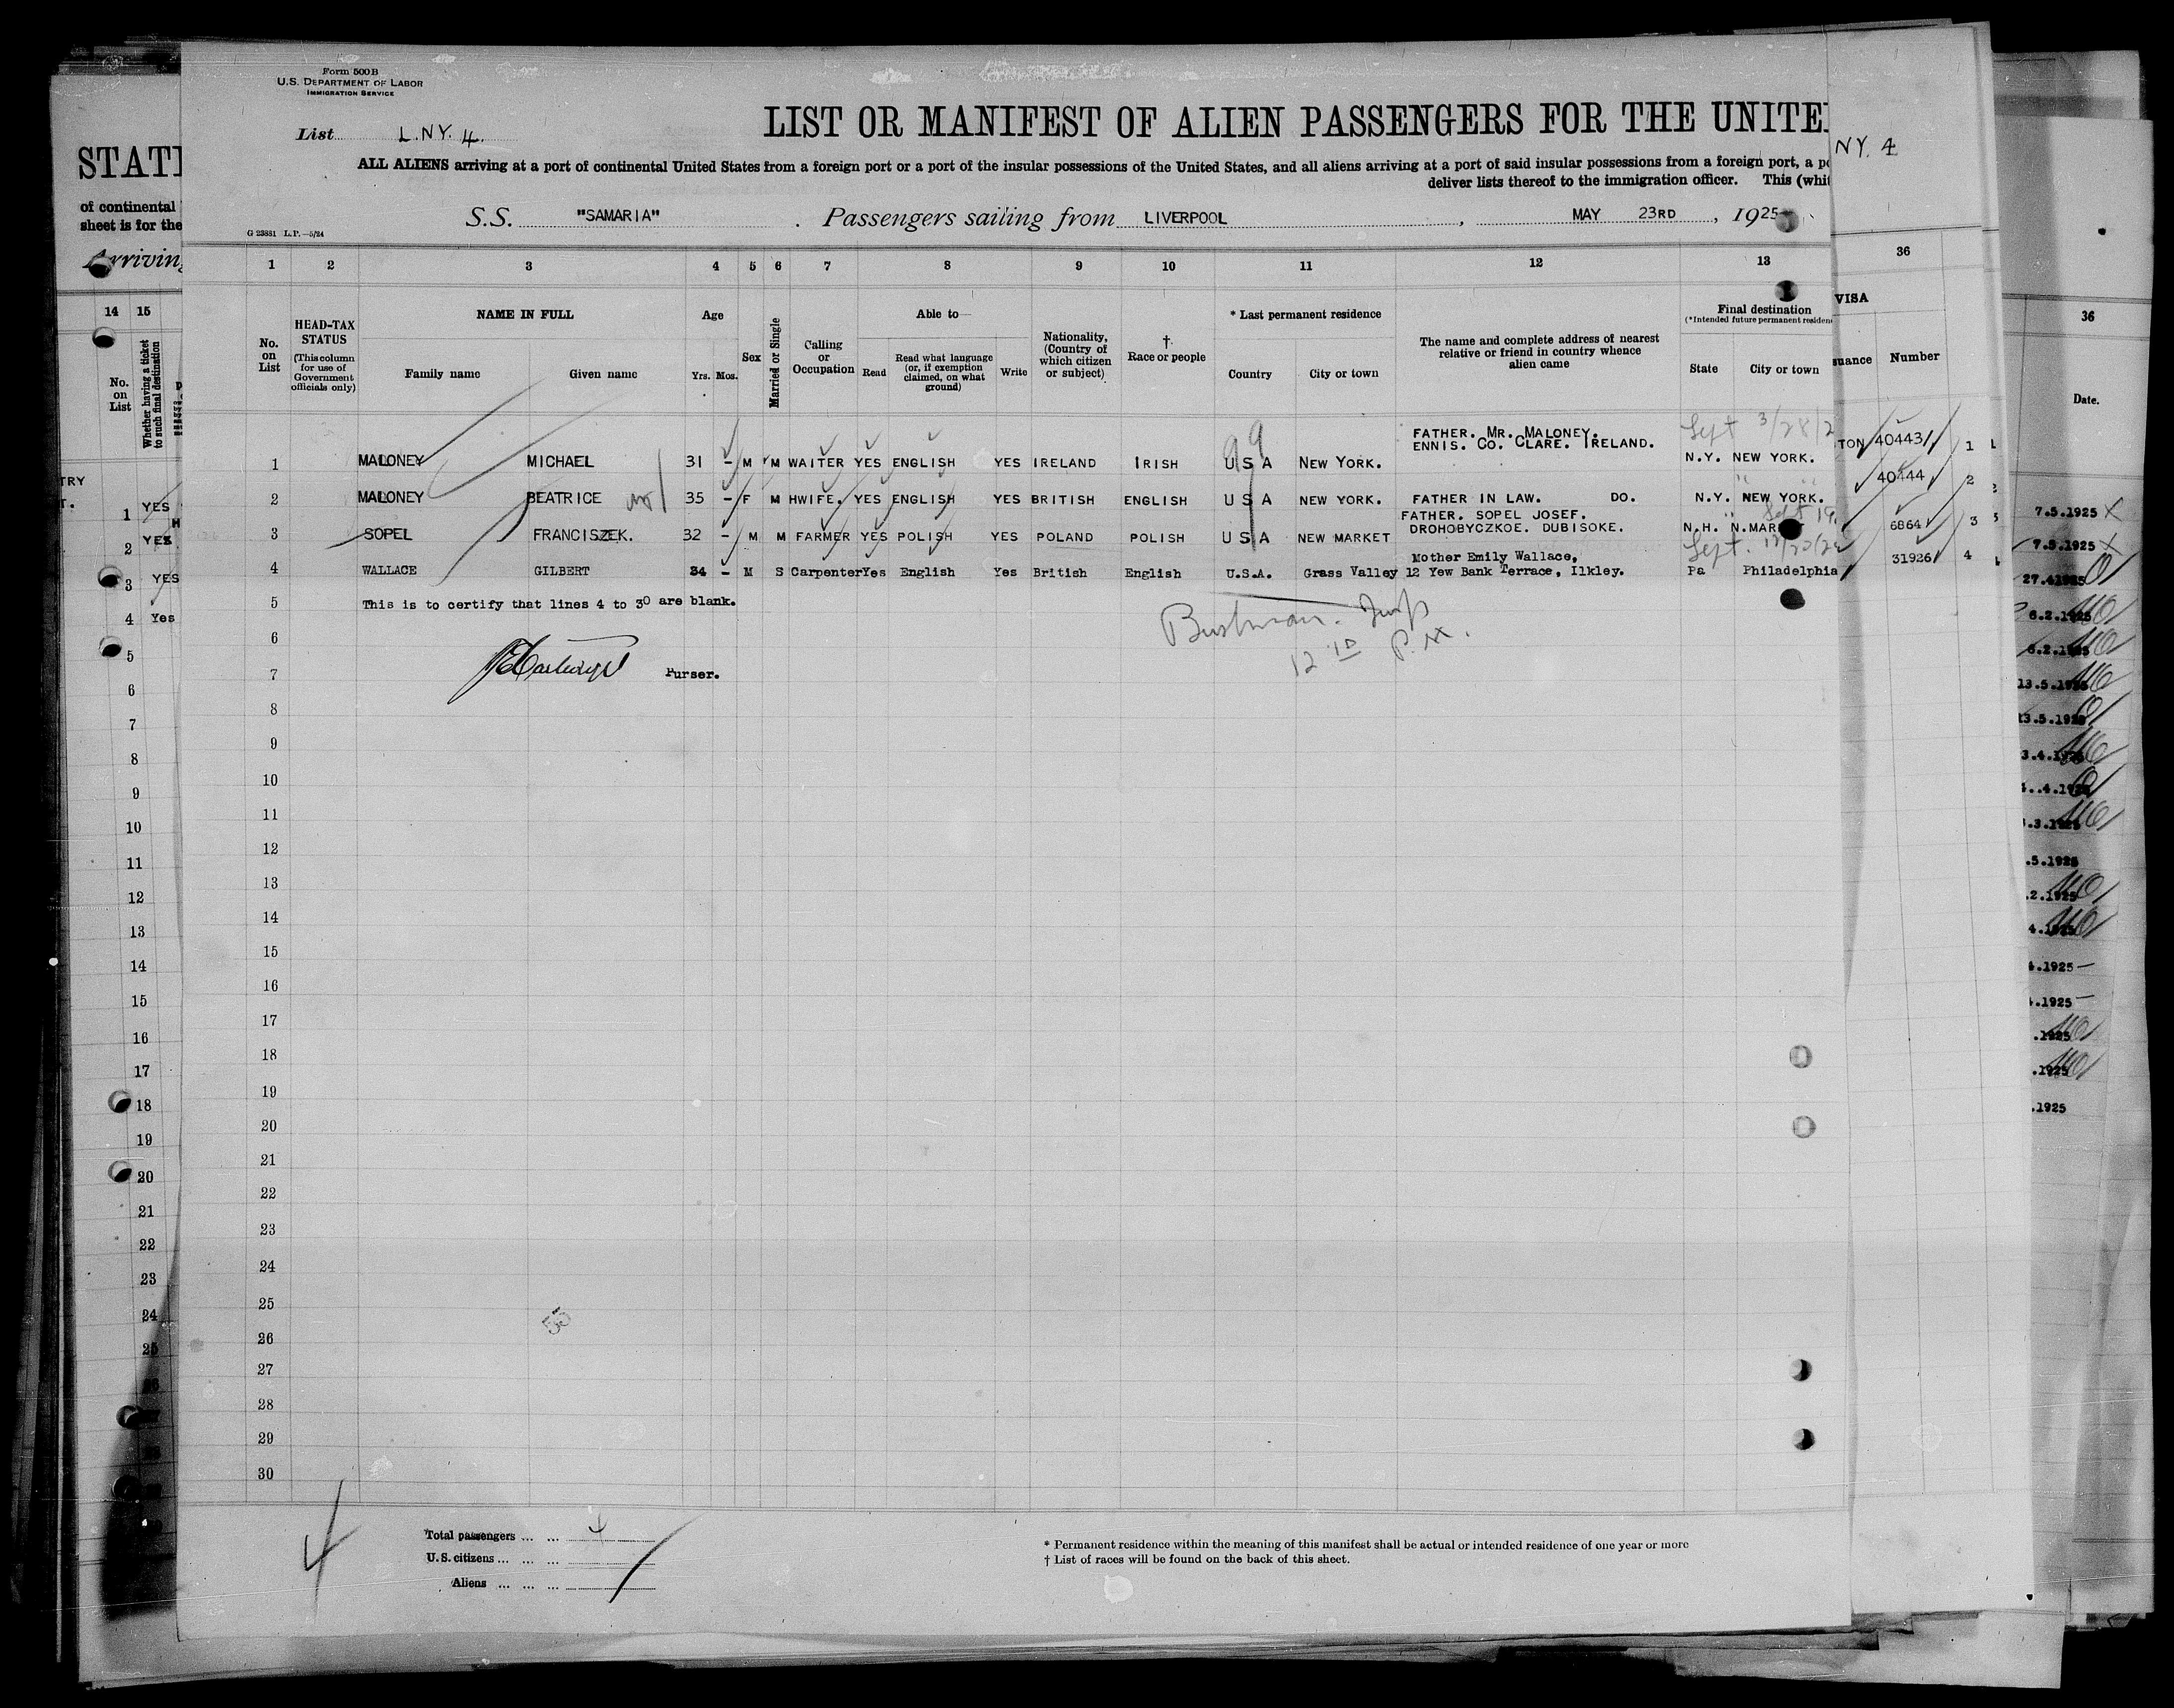 Form 500B
U.S. DEPARTMENT OF LABOR
IMMIGRATION SERVICE
List L.NY. 4.
LIST OR MANIFEST OF ALIEN PASSENGERS FOR THE UNITE
ALL ALIENS arriving at a port of continental United States from a foreign port or a port of the insular possessions of the United States, and all aliens arriving at a port of said insular possessions from a foreign port, a po
deliver lists thereof to the immigration officer. This (whit
S.S. "SAMARIA". Passengers sailing from LIVERPOOL, MAY 23RD, 1925
G 23881 L.P.—5/24
1 2 3 4 5 6 7 8 9 10 11 12 13
No. on List
HEAD-TAX STATUS
(This column for use of Government officials only)
NAME IN FULL
Family name Given name
Age
Yrs. Mos.
Sex
Married or Single
Calling or Occupation
Able to—
Read
Read what language (or, if exemption claimed, on what ground)
Write
Nationality, (Country of which citizen or subject)
† Race or people
* Last permanent residence
Country City or town
The name and complete address of nearest relative or friend in country whence alien came
Final destination
(*Intended future permanent residen
State City or town
Sept 3/28/2
FATHER. MR. MALONEY.
ENNIS. CO. CLARE. IRELAND.
1 MALONEY MICHAEL 31 - M M WAITER YES ENGLISH YES IRELAND IRISH USA NEW YORK. N.Y. NEW YORK.
2 MALONEY BEATRICE 35 - F M HWIFE. YES ENGLISH YES BRITISH ENGLISH USA NEW YORK. FATHER IN LAW. DO. N.Y. NEW YORK.
FATHER. SOPEL JOSEF.
3 SOPEL FRANCISZEK. 32 - M M FARMER YES POLISH YES POLAND POLISH USA NEW MARKET DROHOBYCZKOE. DUBISOKE. N.H.
Mother Emily Wallace,
4 WALLACE GILBERT 34 - M S Carpenter Yes English Yes British English U.S.A. Grass Valley 12 Yew Bank Terrace, Ilkley. Pa Philadelphia
5 This is to certify that lines 4 to 30 are blank.
6
7 Purser.
8
9
10
11
12
13
14
15
16
17
18
19
20
21
22
23
24
25
26
27
28
29
30
55
4
Total passengers ... ... 4
U.S. citizens ... ... ...
Aliens ... ... ...
* Permanent residence within the meaning of this manifest shall be actual or intended residence of one year or more
† List of races will be found on the back of this sheet.
STATE
of continental
sheet is for the
Arriving
14 15
No. on List
Whether having a ticket to such final destination
1 YES
2 YES
3 YES
4 Yes
5
6
7
8
9
10
11
12
13
14
15
16
17
18
19
20
21
22
23
24
25
NY. 4
36
VISA
Number
TON 40443 1
40444 2
6864 3
31926 4
36
Date.
7.5.1925
7.5.1925
27.4.1925
6.2.1925
6.2.1925
13.5.1925
13.5.1925
3.4.1925
.4.1925
.3.1925
.5.1925
.2.1925
4.1925
4.1925
.1925
.1925
.1925
.1925